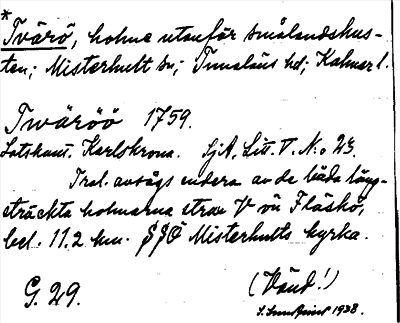 *
Tvärö, holme utanför smålandskus-
ten; Misterhult sn; Tunaläns hd; Kalmar l.
Twäröö 1759.
Lotskont. Karlskrona. SjA, Litt. V. No 23.
Trol. avsågs endera av de båda lång-
sträckta holmarna strax V om Fläskö,
bel. 11.2 km. SSÖ Misterhults kyrka.
G. 29.
(Vänd!)
1938.